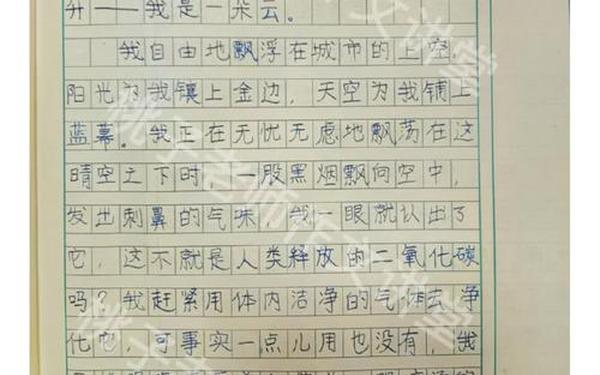 升——我是一朵云。
我自由地飘浮在城市的上空，
阳光为我镶上金边，天空为我铺上
蓝幕。我正在无忧无虑地飘荡在这
晴空之下时，一股黑烟飘向空中，
发出刺鼻的气味，我一眼就认出了
它，这不就是人类释放的二氧化碳
吗？我赶紧用体内洁净的气体去净
化它，可事实一点儿用也没有，我